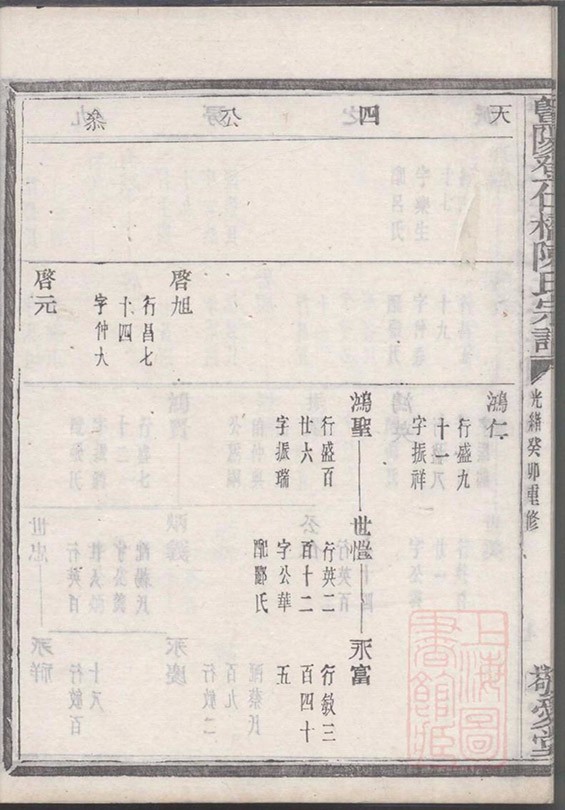 暨陽登仕橋陳氏宗譜
光緒癸卯重修
敬愛堂
上海圖
書館藏
天四公派
鴻仁
行盛九
十一
字振祥
鴻聖
行盛百
廿六
字振瑞
世
行英二
百十二
字公華
配酈氏
永富
行敏三
百四十
五
啓旭
行昌七
十四
字仲大
啓元